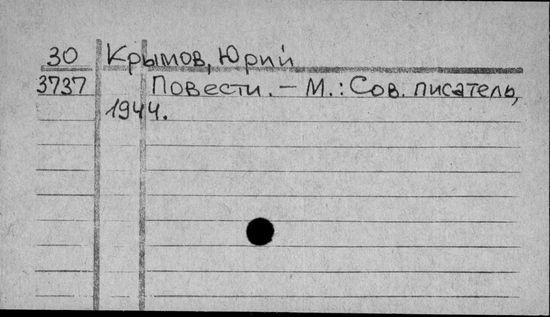 30 Крымов, Юрий
3737 Повести. – М.: Сов. писатель,
1944.